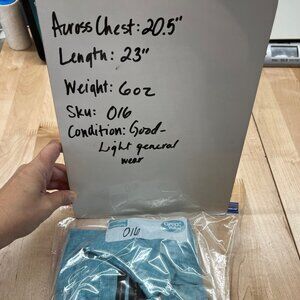 Across Chest: 20.5"
Length: 23"
Weight: 6oz
Sku: 016
Condition: Good-
Light general
wear
016